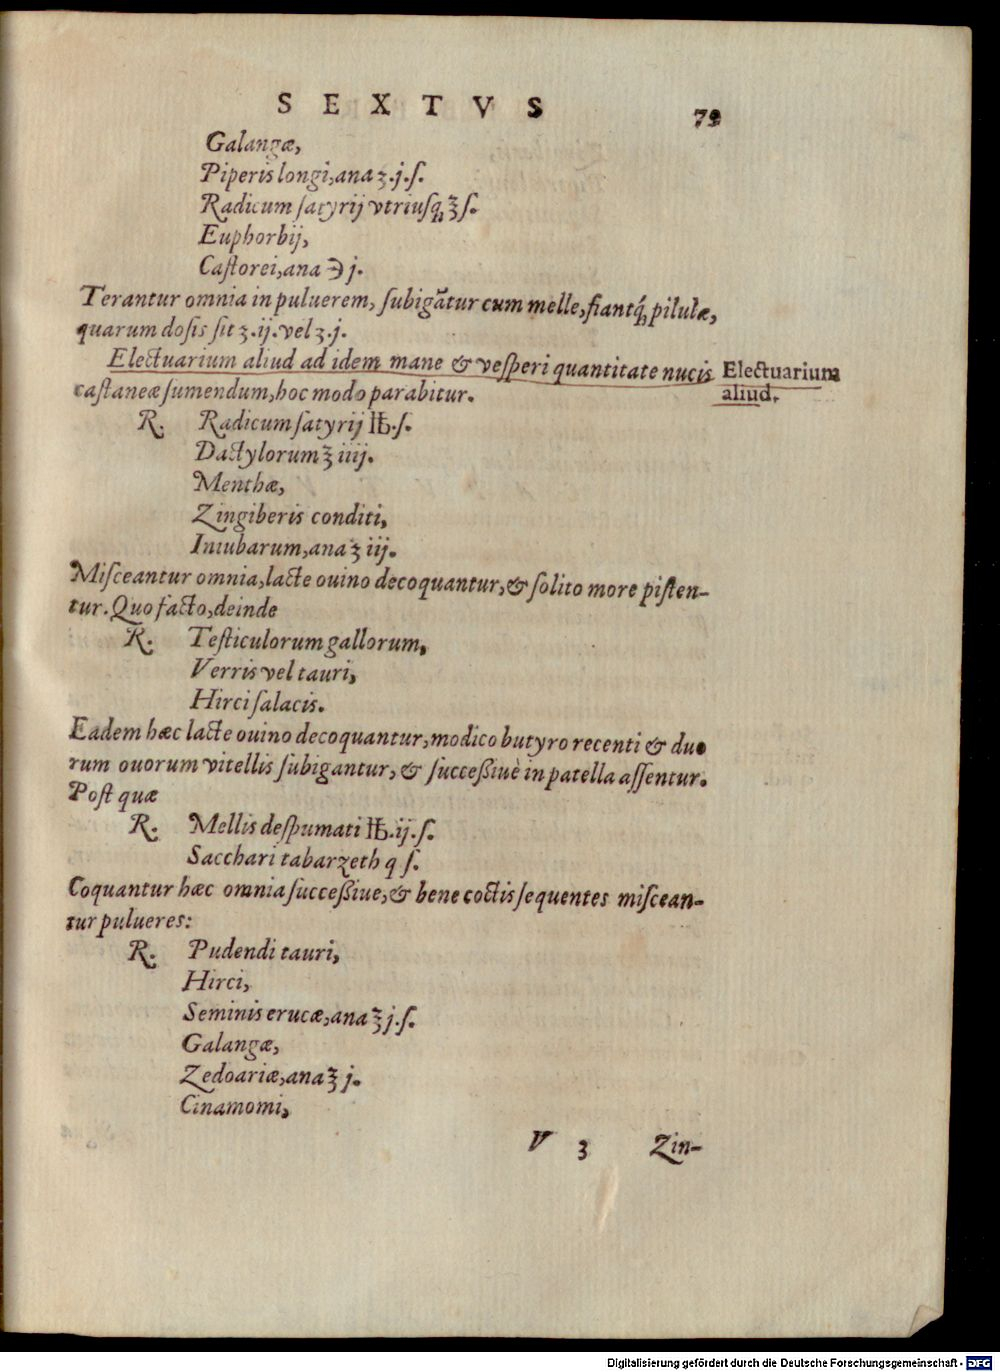 SEXTVS 79
Galangæ,
Piperis longi, ana ʒ.j.ſ.
Radicum ſatyrij vtriuſq́; ℥ ſ.
Euphorbij,
Caſtorei, ana ℈ j.
Terantur omnia in puluerem, ſubigātur cum melle, fiantq́; pilulæ,
quarum doſis ſit ʒ.ij. vel ʒ.j.
Electuarium aliud ad idem mane & veſperi quantitate nucis
Electuarium
aliud.
caſtaneæ ſumendum, hoc modo parabitur.
R. Radicum ſatyrij ℔.ſ.
Dactylorum ℥ iiij.
Menthæ,
Zingiberis conditi,
Iuiubarum, ana ℥ iij.
Miſceantur omnia, lacte ouino decoquantur, & ſolito more piſten-
tur. Quo facto, deinde
R. Teſticulorum gallorum,
Verris vel tauri,
Hirci ſalacis.
Eadem hæc lacte ouino decoquantur, modico butyro recenti & duo
rum ouorum vitellis ſubigantur, & ſucceßiuè in patella aſſentur.
Poſt quæ
R. Mellis deſpumati ℔.ij.ſ.
Sacchari tabarzeth q ſ.
Coquantur hæc omnia ſucceßiue, & bene coctis ſequentes miſcean-
tur pulueres:
R. Pudendi tauri,
Hirci,
Seminis erucæ, ana ℥ j.ſ.
Galangæ,
Zedoariæ, ana ℥ j.
Cinamomi,
V 3 Zin-
Digitalisierung gefördert durch die Deutsche Forschungsgemeinschaft - DFG